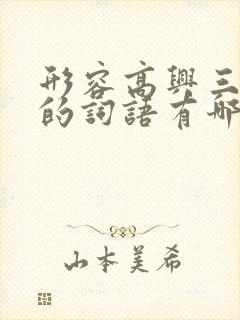 形容高興三
的詞語有哪
山本美希